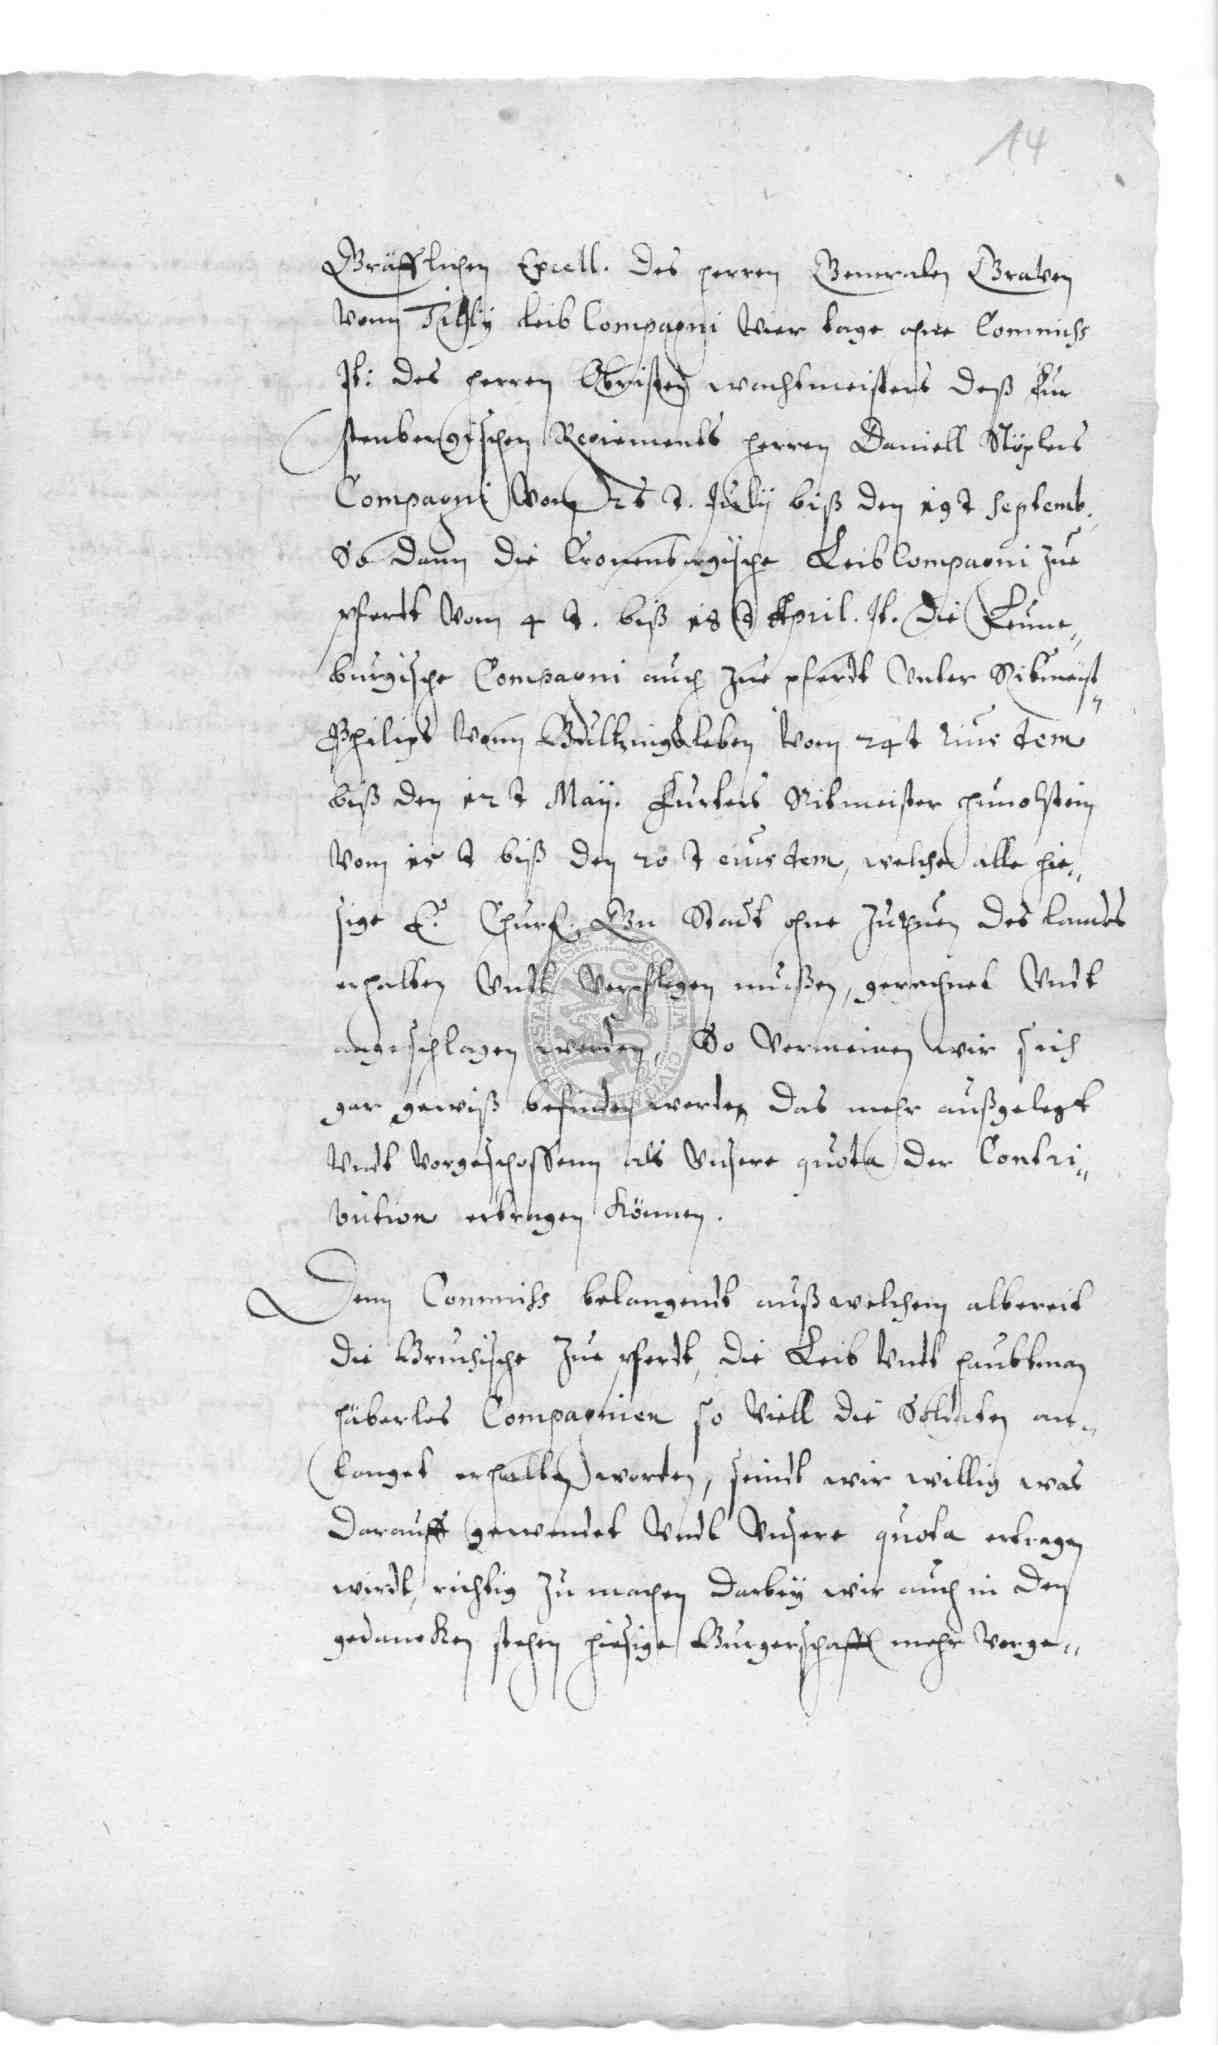 14
Gräfflichen Excell. des herren Generalen Graven
vonn Tilly leib Compagni vier tage ohne Commiss
It: des herren Obristen wachtmeisters deß Fur
stenbergischen Regiements herren Daniell
Compagni vom 26 t. July biß den 19 t Septemb.
So dann die Cronenbergische Leib Compagni zue
pferdt vom 4 t. biß 18 t April. It. die Leune„
burgische Compagni auch zue pferdt unter Ritmeist„
Philips vonn Bultzingsleben vom 24 t eiusdem
biß den 12 t Maÿ. Ritmeister hunolstein
vom 15 t biß den 20 t eiusdem, welche alle hie„
sige E. Churf. Gn Stadt ohne zuthuen des landts
erhalten undt verpflegen mußen, gerechnet undt
angeschlagen werden, So vermeinen wir sich
gar gewiß befinden werde, das mehr außgelegt
undt vorgeschossenn als unsere quota der Contri„
bution ertragen können.
Denn Commiss belangendt auß welchem albereit
die zue pferdt, die Leib undt haubtman
häberles Compagnien so viell die Soldaten an„
langet erhalten worden, seindt wir willig was
darauff gewendet undt unsere quota ertragen
wirdt, richtig zu machen darbeÿ wir auch in den
gedancken stehen hiesige Burgerschafft mehr vorge„